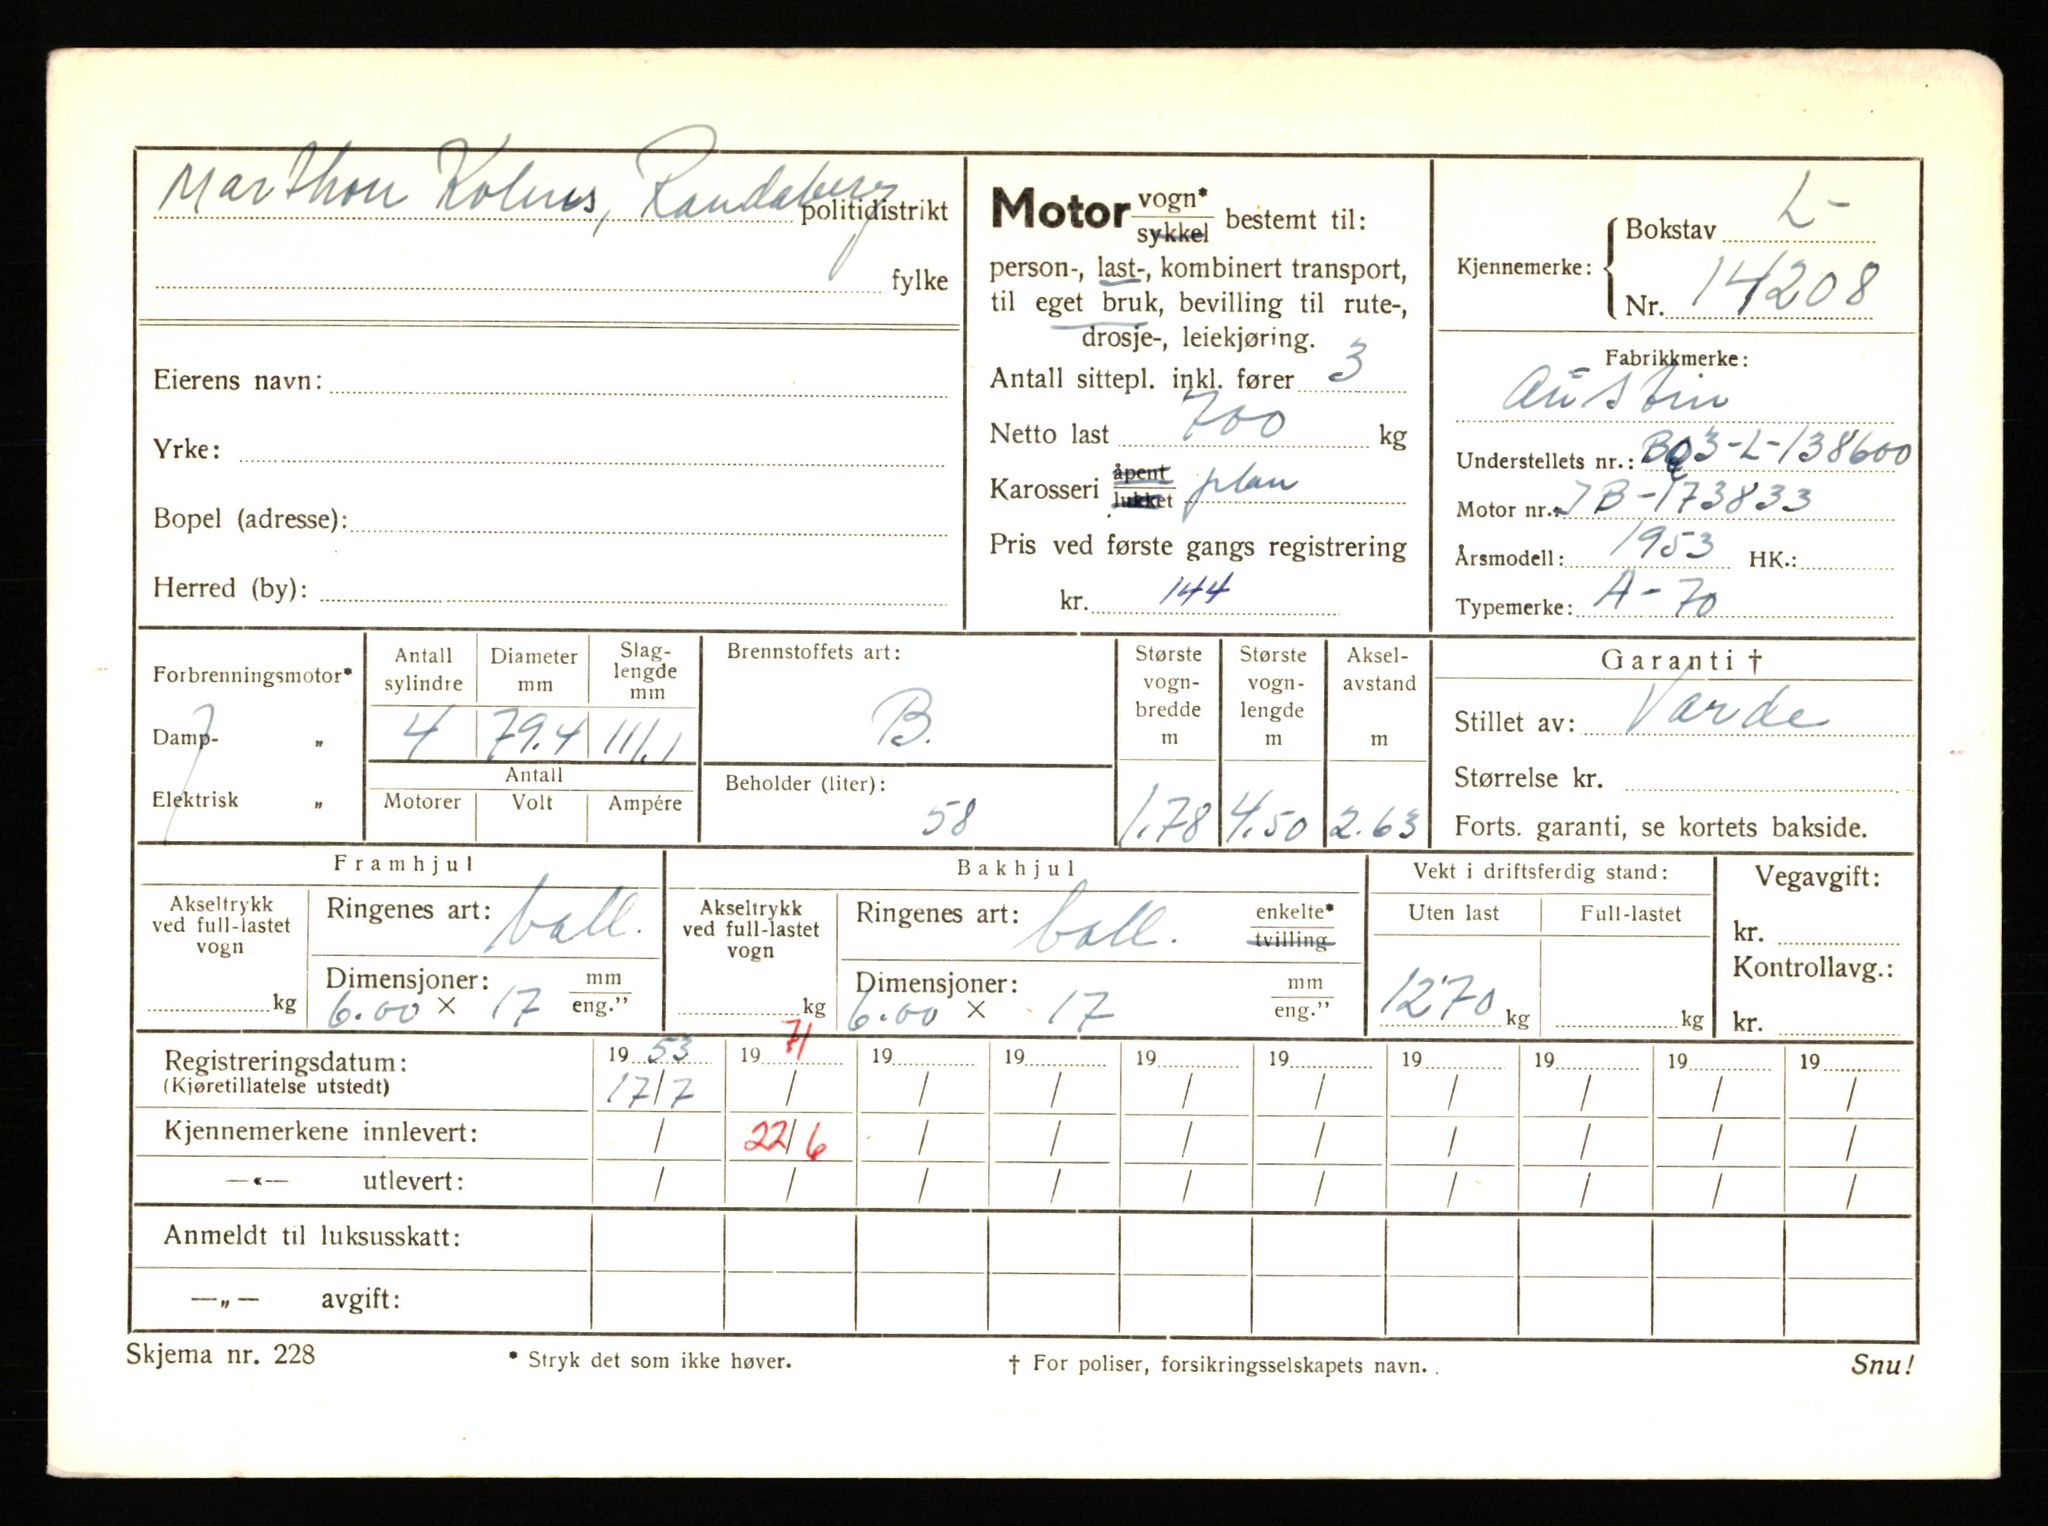 Marthon Kolnes, Randaberg politidistrikt
fylke
Eierens navn:
Yrke:
Bopel (adresse):
Herred (by):
Motor vogn* sykkel bestemt til:
person-, last-, kombinert transport,
til eget bruk, bevilling til rute-,
drosje-, leiekjøring.
Antall sittepl. inkl. fører 3
Netto last 700 kg
Karosseri åpent lukket plan
Pris ved første gangs registrering
kr. 144
Kjennemerke: Bokstav L-
Nr. 14208
Fabrikkmerke:
Austin
Understellets nr.: B03-L-138600
Motor nr.: JB-173833
Årsmodell: 1953 HK.:
Typemerke: A-70
Forbrenningsmotor*
Damp- „
Elektrisk „
Antall sylindre Diameter mm Slag-lengde mm
4 79.4 111.1
Antall
Motorer Volt Ampére
Brennstoffets art:
B.
Beholder (liter):
58
Største vogn-bredde m
1.78
Største vogn-lengde m
4.50
Aksel-avstand m
2.63
Garanti †
Stillet av: Varde
Størrelse kr.
Forts. garanti, se kortets bakside.
Framhjul
Akseltrykk ved full-lastet vogn
kg
Ringenes art: ball.
Dimensjoner: mm
6.00 × 17 eng.”
Bakhjul
Akseltrykk ved full-lastet vogn
kg
Ringenes art: ball. enkelte* tvilling
Dimensjoner: mm
6.00 × 17 eng.”
Vekt i driftsferdig stand:
Uten last Full-lastet
1270 kg kg
Vegavgift:
kr.
Kontrollavg.:
kr.
Registreringsdatum: 19 53 19 71 19 19 19 19 19 19 19 19
(Kjøretillatelse utstedt) 17/7 / / / / / / / / /
Kjennemerkene innlevert: / 22/6 / / / / / / / /
—«— utlevert: / / / / / / / / / /
Anmeldt til luksusskatt:
—„— avgift:
Skjema nr. 228 * Stryk det som ikke høver. † For poliser, forsikringsselskapets navn. Snu!